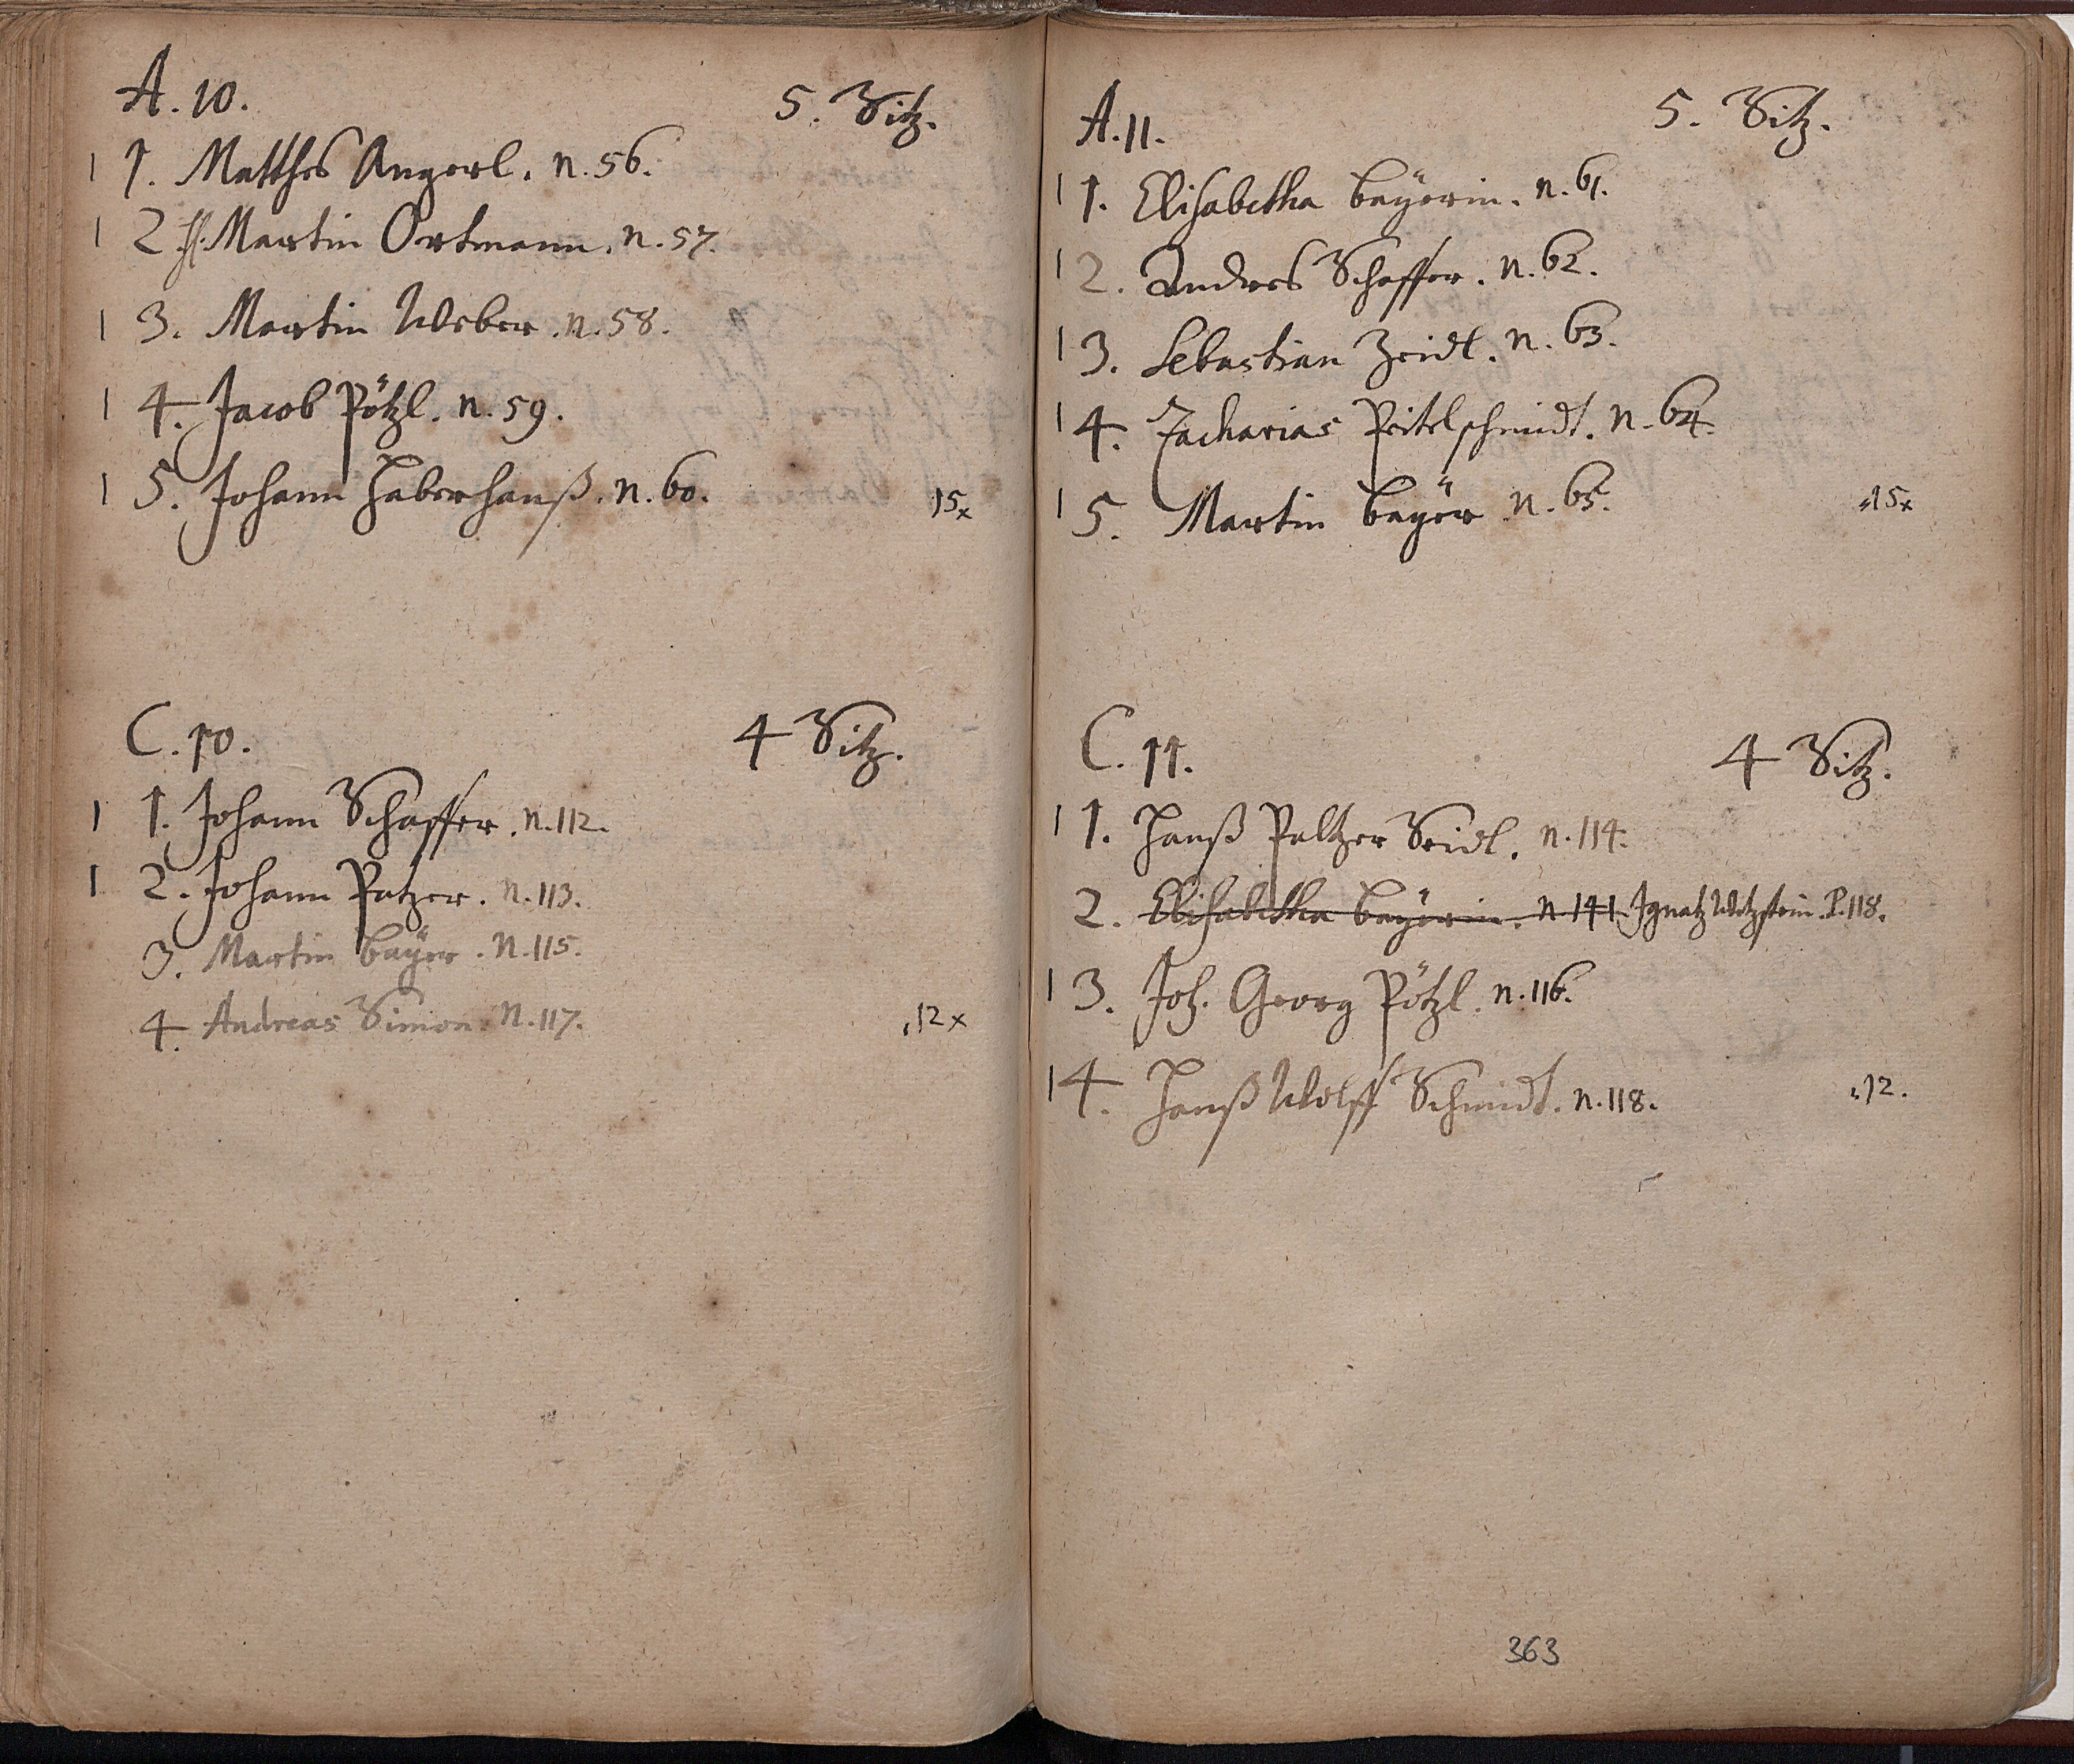 A. 10.
5. Sitz.
1 1. Matthes Angerl. n. 56.
1 2. H. Martin Ortmann. n. 57.
1 3. Martin Weber. n. 58.
1 4. Jacob Pötzl. n. 59.
1 5. Johann Haberhanß. n. 60.
15x
C. 10.
4 Sitz.
1 1. Johann Schaffer. n. 112.
1 2. Johann Patzer. n. 113.
3. Martin Bayer. n. 115.
4. Andreas Simon. n. 117.
12x
A. 11.
5. Sitz.
1 1. Elisabetha Bayerin. n. 61.
1 2. Andres Schaffer. n. 62.
1 3. Sebastian Zeidl. n. 63.
1 4. Zacharias Peitelschmidt. n. 64.
1 5. Martin Bayer n. 65.
15x
C. 11.
4 Sitz.
1 1. Hanß Paltzer Seidl. n. 114.
2. Elisabetha Bayerin. n. 141. Ignatz Wetzstein. P. 118.
1 3. Joh. Georg Pötzl. n. 116.
1 4. Hanß Wolff Schmidt. n. 118.
12.
363